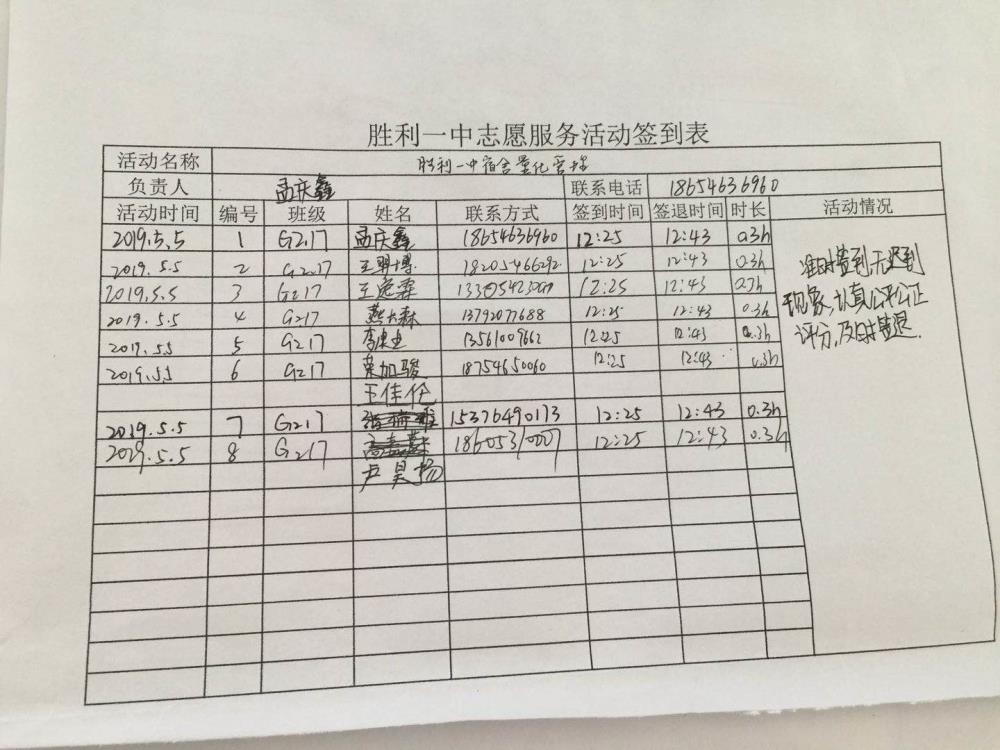 胜利一中志愿服务活动签到表
活动名称 胜利一中宿舍量化管理
负责人 孟庆鑫 联系电话 18654636960
活动时间 编号 班级 姓名 联系方式 签到时间 签退时间 时长 活动情况
2019.5.5 1 G217 孟庆鑫 18654636960 12:25 12:43 0.3h
2019.5.5 2 G217 王羿博 18205466292 12:25 12:43 0.3h
2019.5.5 3 G217 12:25 12:43 0.3h
2019.5.5 4 G217 燕大森 13792077688 12:25 12:43 0.3h
2019.5.5 5 G217 13561009662 12:25 12:43 0.3h
2019.5.5 6 G217 荣加骏 18754650060 12:25 12:43 0.3h
王佳伦
2019.5.5 7 G217 15376490173 12:25 12:43 0.3h
2019.5.5 8 G217 18605310007 12:25 12:43 0.3h
卢昊扬
准时签到,无迟到
现象,认真公平公正
评分,及时签退.